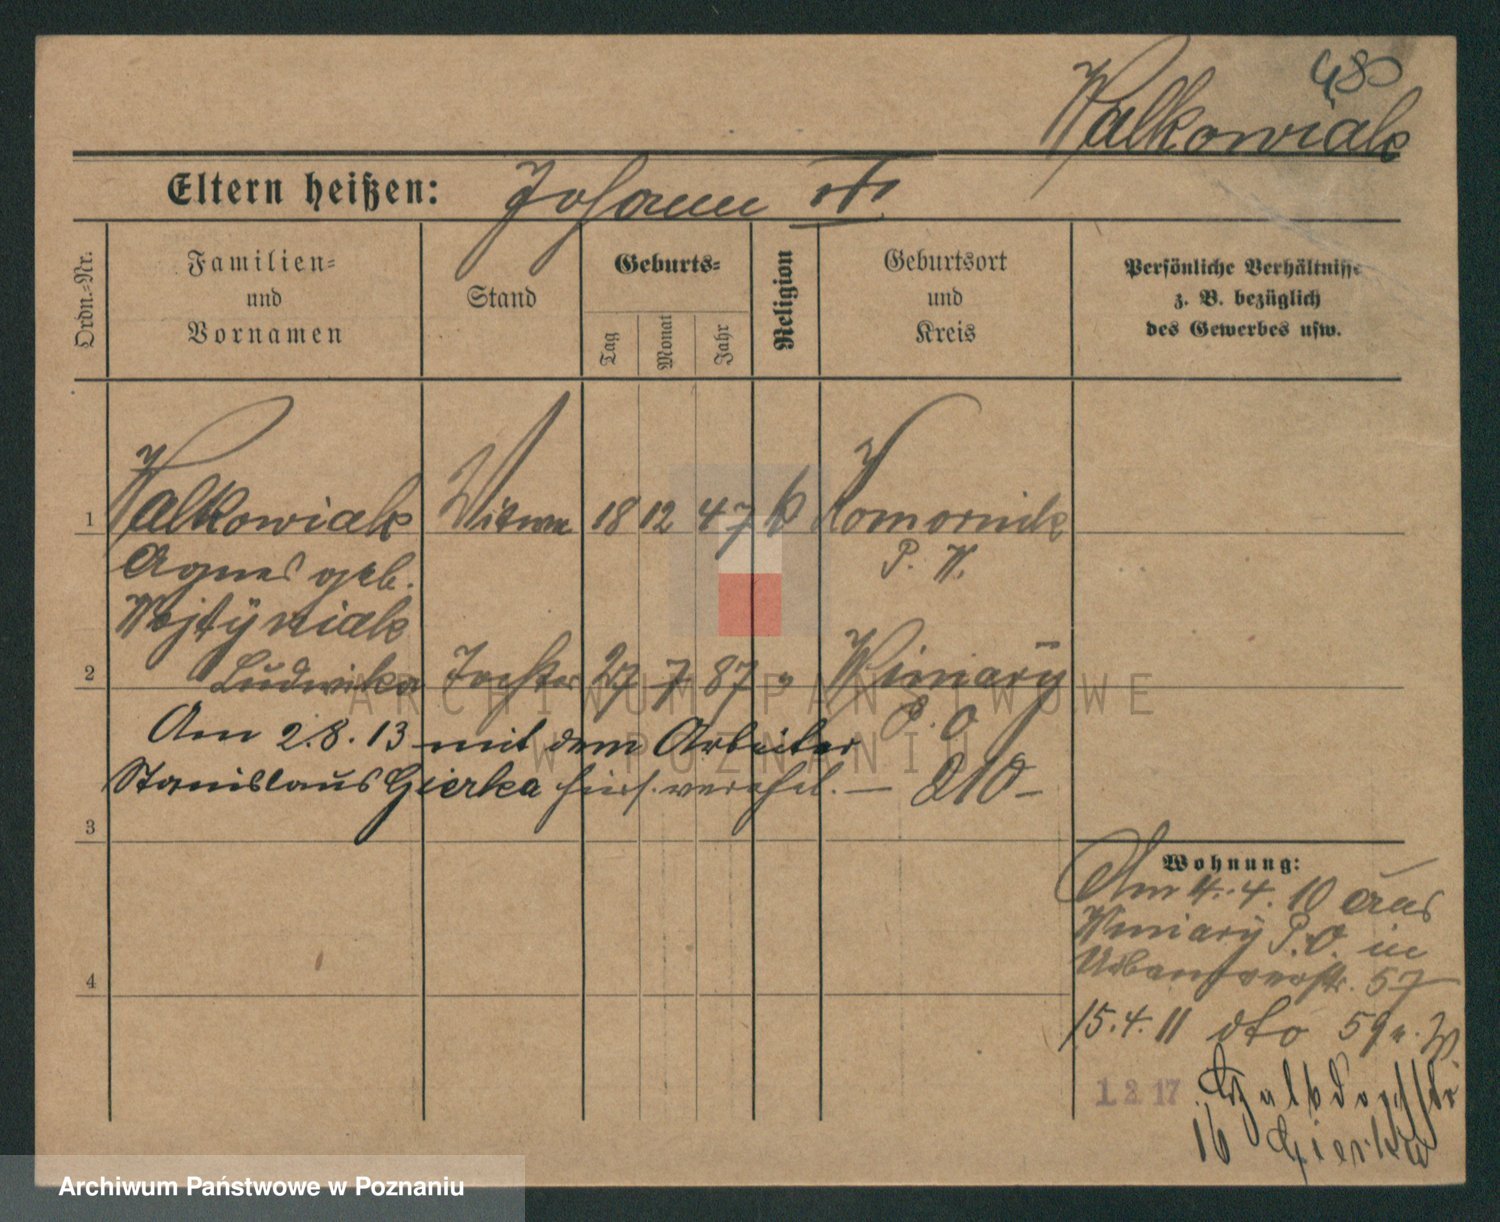 480
Walkowiak
Eltern heißen: Johann
Ordn.-Nr.
Familien- und Vornamen
Stand
Geburts-
Tag
Monat
Jahr
Religion
Geburtsort und Kreis
Persönliche Verhältnisse
z. B. bezüglich
des Gewerbes usw.
1 Walkowiak Witwe 18 12 47 k Komornik
Agnes geb. P. W.
Wojtÿniak
2 Ludwika Tochter 27 7 87 " Winiarÿ
P. O
Am 2.8.13 mit dem Arbeiter
Stanislaus Gierka hier verehel. —
3
4
Wohnung:
Am 4.4.10 aus
Winiarÿ P.O. in
57
15.4.11 dto 59
1 2 17
16 Gierka
ARCHIWUM PAŃSTWOWE
W POZNANIU
Archiwum Państwowe w Poznaniu